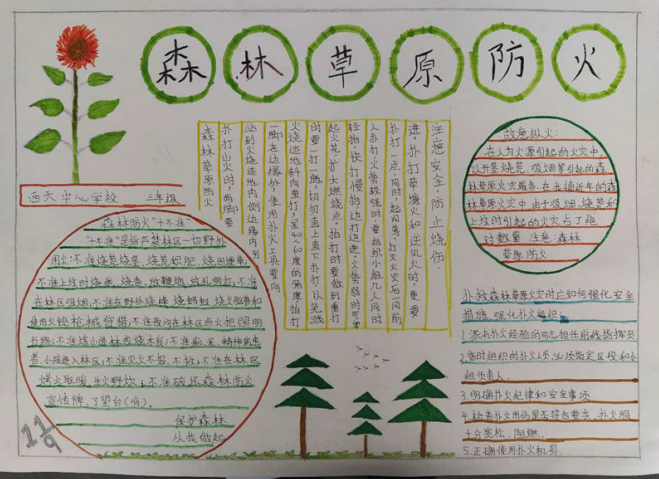 森林草原防火
西天中心学校 三年级
森林防火"十不准"
"十不准"是指严禁林区一切野外
用火:不准烧荒烧
不准上坟时烧纸、烧香、放鞭炮、放孔明灯;不准
在林区吸烟;不准在野外烧蜂、烧蚂蚁、烧火取暖和
使用火铳枪械狩猎;不准夜间在林区点火把照明
行路;不准烧山赶林 ;不准痴、呆、精神病患
者、小孩进入林区;不准见火不报、不救;不准在林区
烤火取暖、生火野炊;不准破坏森林防火
宣传牌、了望台(哨)。
保护森林
从我做起
119
注意安全,防止烧伤:
进。扑打草塘火和逆风火时,更要
扑打一点,同时
人扑打火势较强时,要组织小组几人同时
轻抬,快打慢抬边打边进。火势弱时可
起火花,扩大燃烧点。拍打时要做到重打
时要一打一拖,切勿直上直下扑打,以免溅
火烧迹地斜向重打,呈40~60度的角度拍打
一脚在边缘外,使用扑火工具要向
站到火烧迹地内侧边缘内另
扑打山火时,两脚要
森林草原防火
故意纵火:
在人为火源引起的火灾中
以开垦烧荒、吸烟等引起的森
林草原火灾最多,在我国近年的森
林草原火灾中,由于吸烟、烧荒和
上坟时引起的火灾占了绝
对数量。注意:森林
草原防火
扑救森林草原火灾时应如何强化安全
措施,强化扑火组织
1.派有扑火经验的同志担任前线指挥员
2.临时组织的扑火人员,必须指定区段和小
组负责人。
3.明确扑火纪律和安全事项
4.检查扑火用品是否符合要求,扑火服
十分宽松、阻燃。
5.正确使用扑火机具